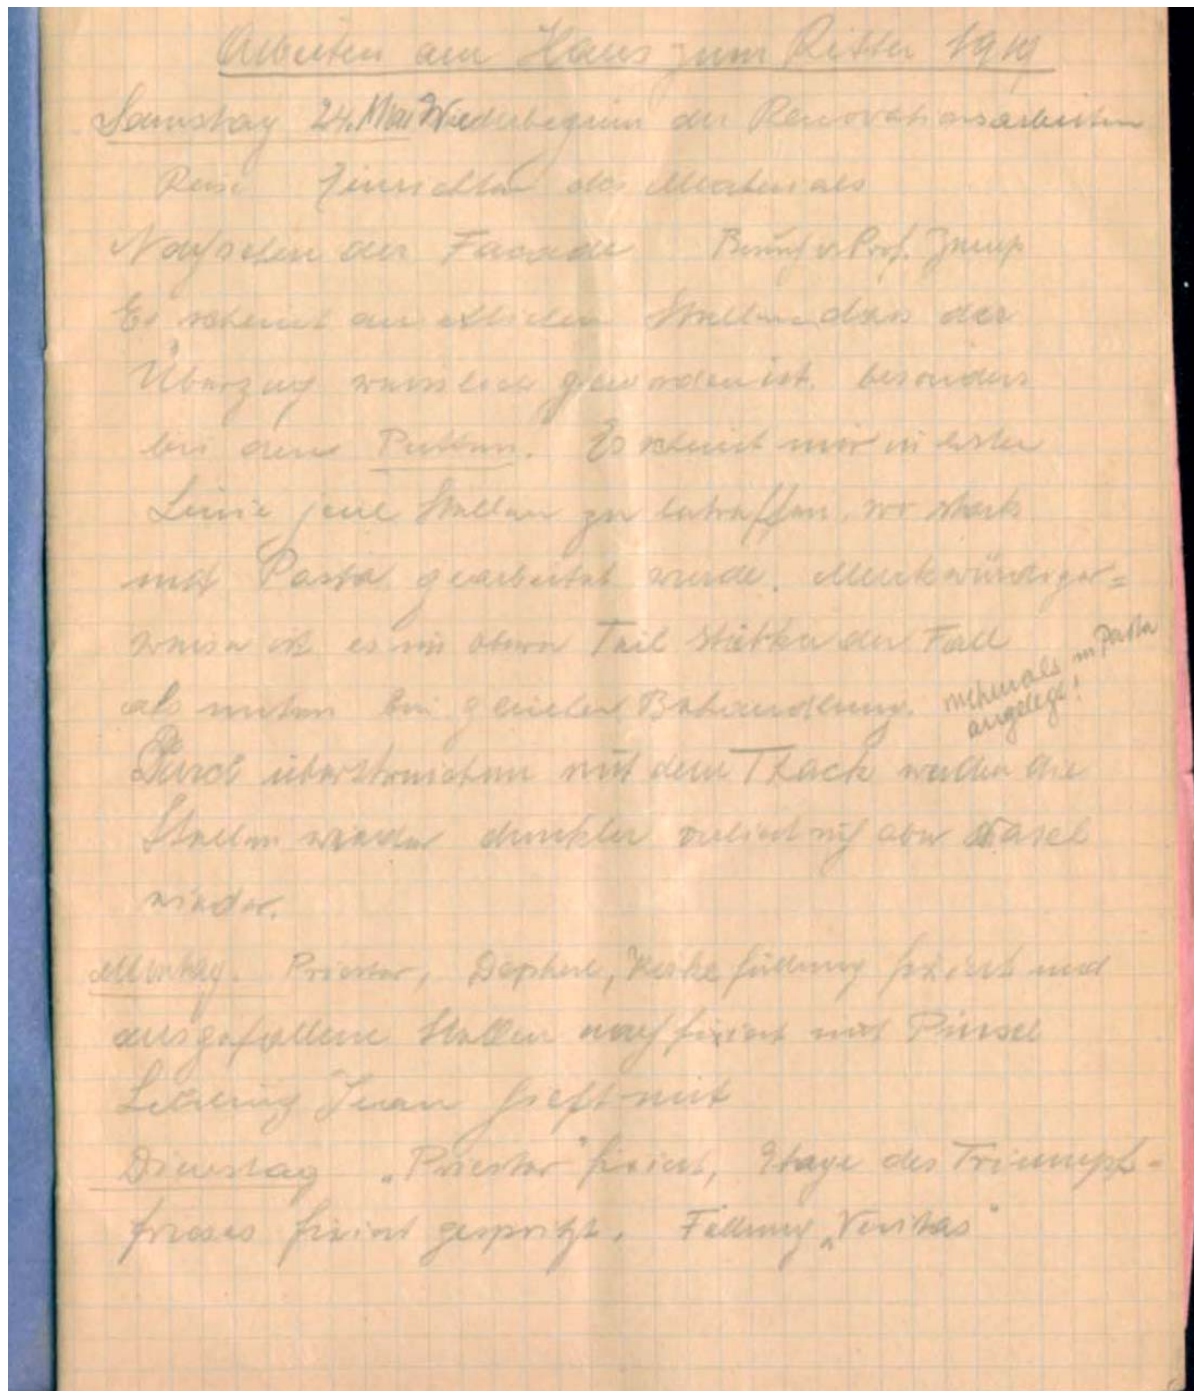 Arbeiten am Haus zum Ritter 1919
Samstag 24. Mai Wiederbeginn der Renovationsarbeiten
Reise Einrichten des Materials
Nachsehen der Facade Besuch v. Prof.
Es scheint an etlichen Stellen dass der
Überzug weisslich geworden ist. besonders
bei den Putten. Es scheint mir in erster
Linie jene Stellen zu betreffen, wo stark
mit Pasta gearbeitet wurde. Merkwürdiger=
weise ist es im obern Teil stärker der Fall
als unten bei gleicher Behandlung. mehrmals m Pasta
angelegt!
Durch überstreichen mit dem Tlack werden die
Stellen wieder dunkler verliert sich aber
wieder.
Montag. Priester, Daphne, füllung fixiert und
ausgefallene Stellen nachfixiert mit Pinsel
Lehrling Jean hieft mit
Dienstag „Priester" fixiert, Etage des Triumpf-
frieses fixiert gespritzt. Füllung „Veritas"